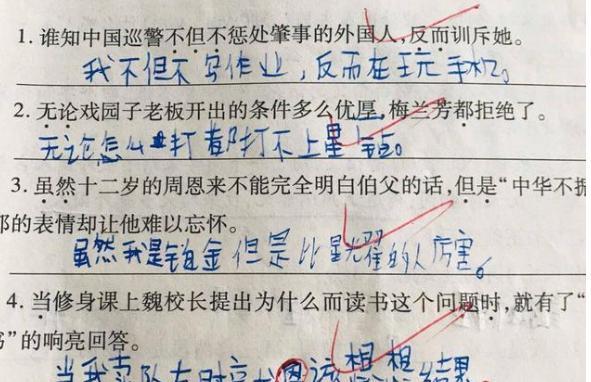 1. 谁知中国巡警不但不惩处肇事的外国人,反而训斥她。
我不但不写作业,反而在玩手机。
2. 无论戏园子老板开出的条件多么优厚,梅兰芳都拒绝了。
无论怎么打都打不上星钻。
3. 虽然十二岁的周恩来不能完全明白伯父的话,但是“中华不振
的表情却让他难以忘怀。
虽然我是铂金但是比星光耀的人厉害。
4. 当修身课上魏校长提出为什么而读书这个问题时,就有了“
书”的响亮回答。
当我 想想结果